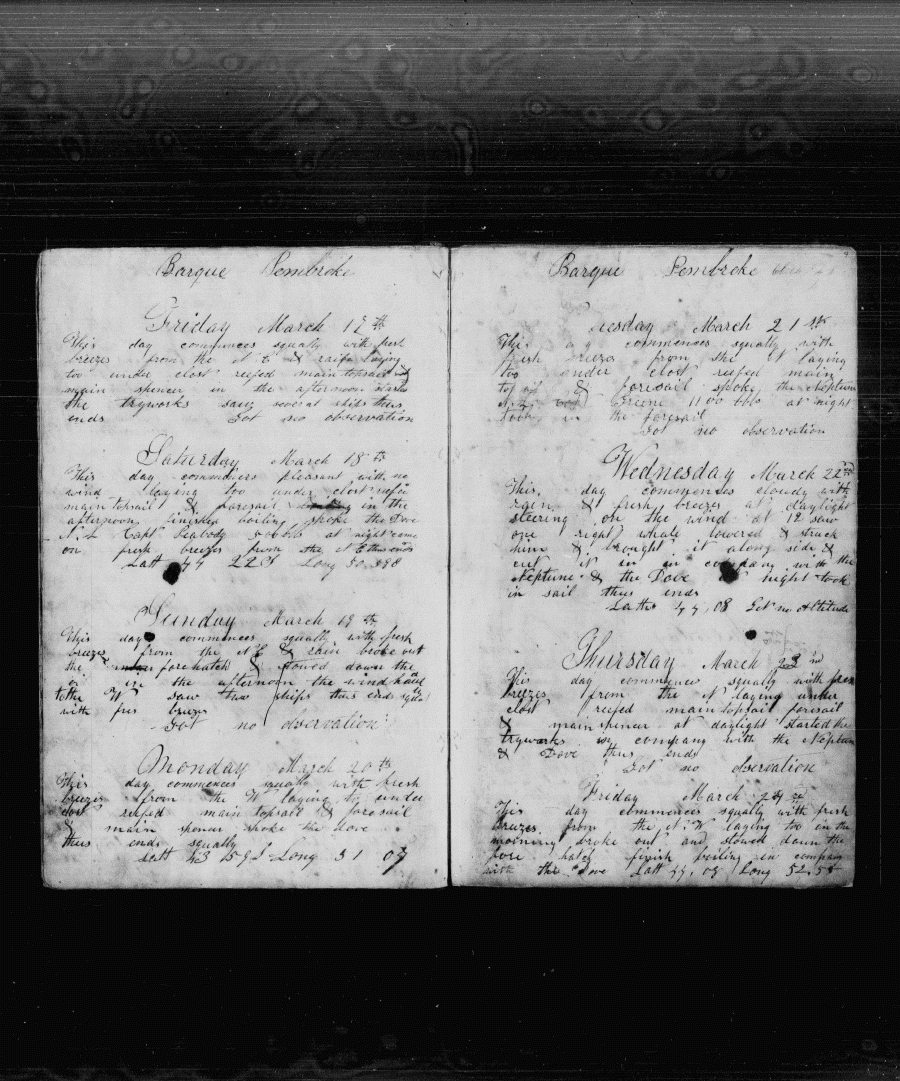 Barque Pembroke
Friday March 17th
This day commences squally with fresh
breezes from the N E & rain laying
too under clost reefed main topsail &
main spencer in the afternoon started
the tryworks saw several ships thus
ends Got no observation
Saturday March 18th
This day commences pleasant with no
wind laying too under clost reefed
main topsail & foresail in the
afternoon finished boiling spoke the Dove
N. L Capt Peabody bbls at night came
on fresh breezes from the N E thus ends
Latt 44 22 S Long 50
Sunday March 19th
This day commences squally with fresh
breezes from the N E & rain broke out
the fore hatch & stowed down the
oil in the afternoon the wind hauled
to the W saw two ships thus ends
with fres breezes
Got no observation
Monday March 20th
This day commences squally with fresh
breezes from the W laying to under
clost reefed main topsail & foresail
& main spencer spoke the dove
thus ends squally
Latt 43 59 S Long 51 07
Barque Pembroke
Tuesday March 21st
This day commences squally with
fresh breezes from the W laying
too under clost reefed main
topsail & foresail spoke the Neptune
Greene 1100 bbls at night
took in the foresail
Got no observation
Wednesday March 22nd
This day commences cloudy with
rain & fresh breezes at daylight
steering on the wind at 12 saw
one right whale lowered & struck
him & brought it along side &
cut it in in company with the
Neptune & the Dove at night took
in sail thus ends
Latter 44,08 Got no Altitude
Thursday March 23rd
This day commences squally with fresh
breezes from the W laying under
clost reefed main topsail foresail
& main spencer at daylight started the
tryworks in company with the Neptune
& Dove thus ends
Got no observation
Friday March 24th
This day commences squally with fresh
breezes from the N. W laying too in the
morning broke out and stowed down the
fore hatch finish boiling in company
with the Dove Latt 44,09 Long 52,58